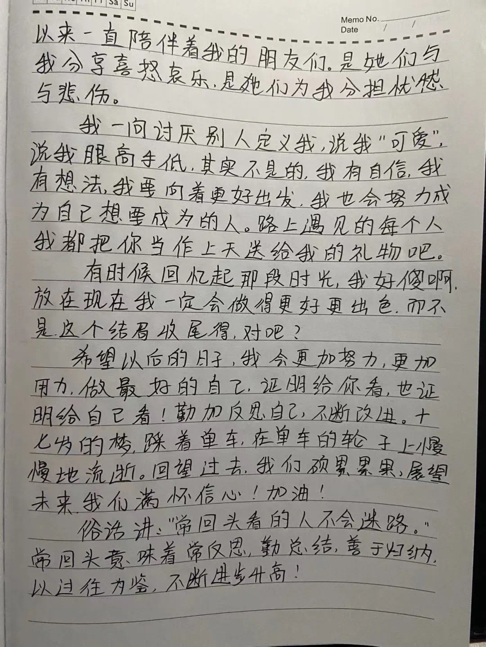 Sa Su
Memo No.
Date / /
以来一直陪伴着我的朋友们。是她们与
我分享喜怒哀乐，是她们为我分担忧愁
与悲伤。
我一向讨厌别人定义我，说我“可爱”，
说我眼高手低，其实不是的，我有自信，我
有想法，我要向着更好出发，我也会努力成
为自己想要成为的人。路上遇见的每个人
我都把你当作上天送给我的礼物吧。
有时候回忆起那段时光，我好傻啊，
放在现在我一定会做得更好更出色，而不
是这个结局收尾得，对吧？
希望以后的日子，我会更加努力，更加
用力，做最好的自己，证明给你看，也证
明给自己看！勤加反思自己，不断改进。十
七岁的梦，踩着单车，在单车的轮子上慢
慢地流逝。回望过去，我们硕累累果，展望
未来，我们满怀信心！加油！
俗话讲：“常回头看的人不会迷路。”
常回头意味着常反思，勤总结，善于归纳，
以过往为鉴，不断进步升高！